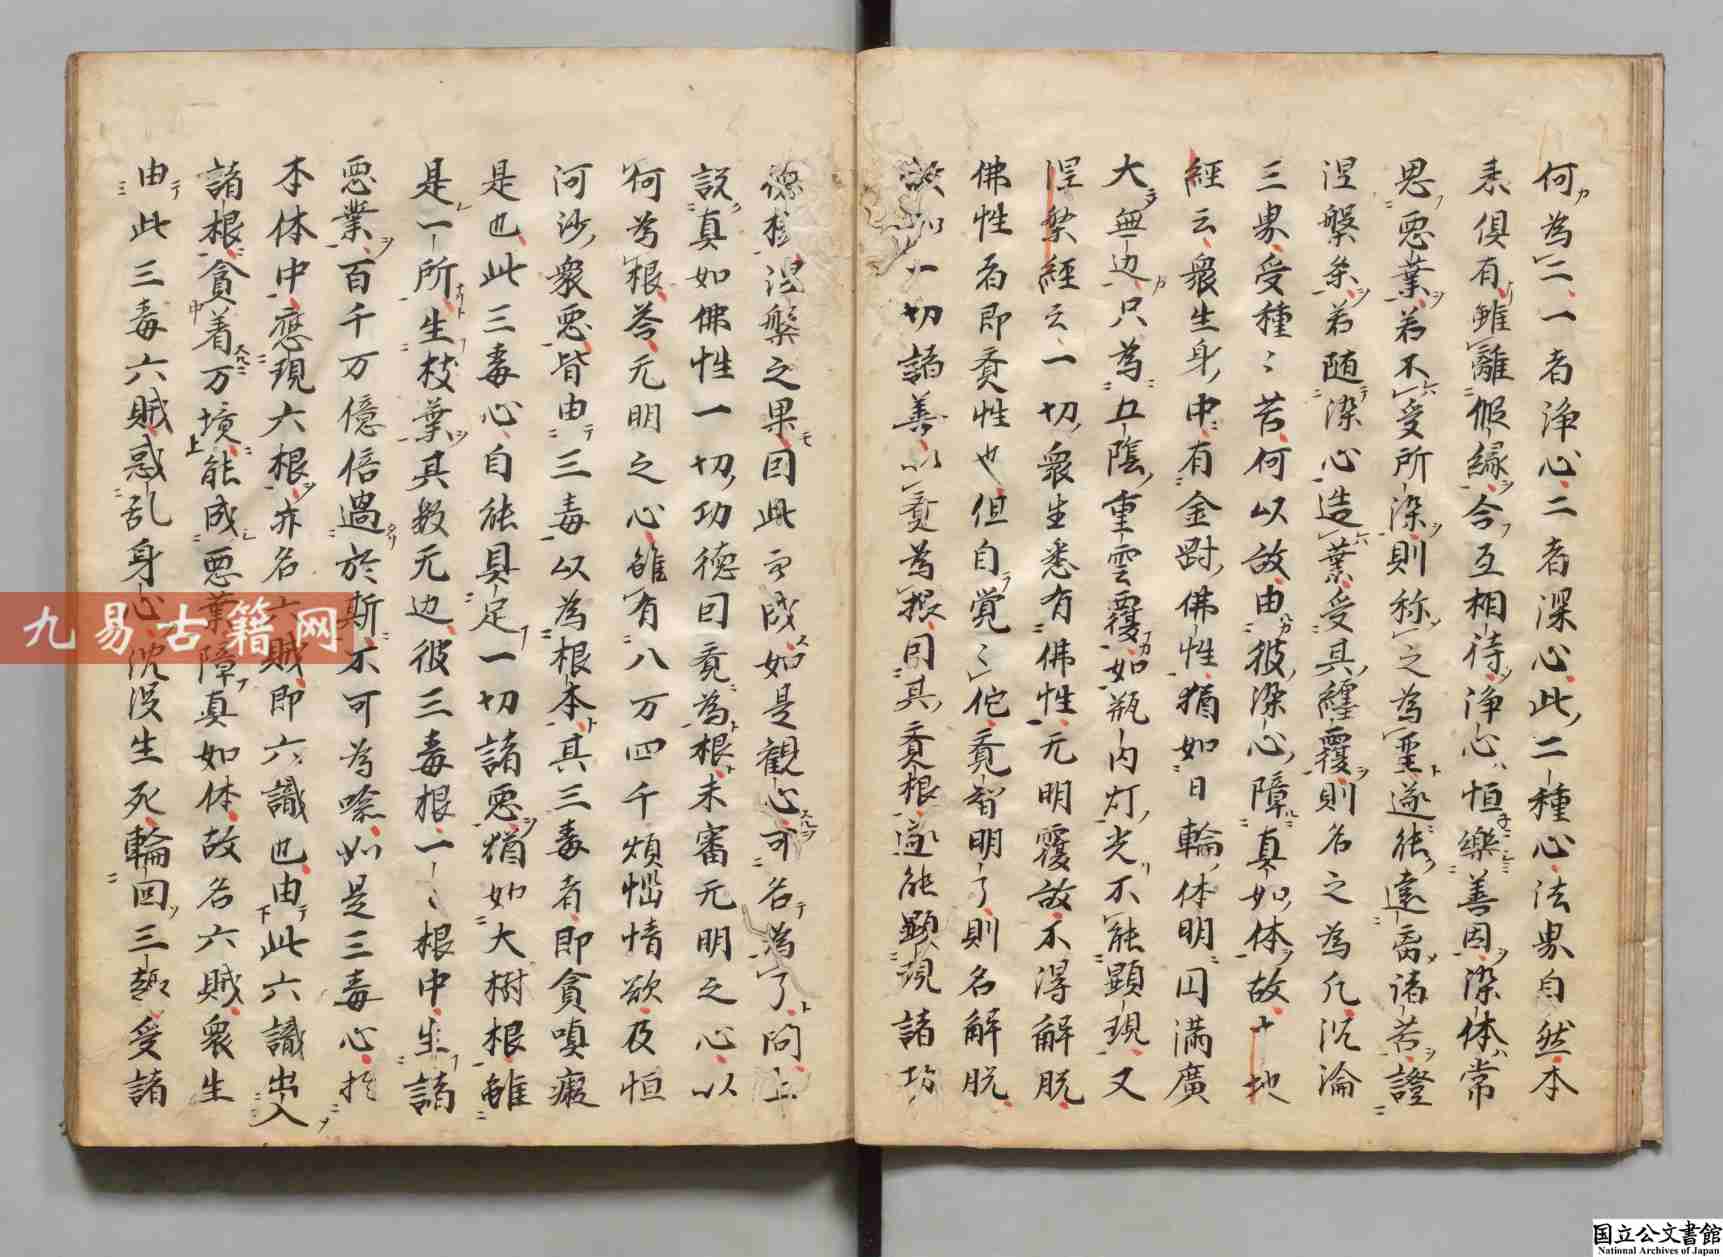 何為二一者浄心二者染心此二種心法界自然本
来俱有雖離假縁合互相待浄心恒樂善因染体常
思悪業若不受所染則称之為聖遂能遠离諸苦證
涅槃樂若随染心造業受其纒覆則名之為凡沉淪
三界受種〻苦何以故由彼染心障真如体故十地
經云衆生身中有金剛佛性猶如日輪体明円満廣
大無边只為五陰重雲覆如瓶内灯光不能顕現又
涅槃經云一切衆生悉有佛性无明覆故不得解脱
佛性者即覚性也但自覚〻佗覚智明了則名解脱
故知一切諸善以覚為根因其覚根遂能顕現諸功
德樹涅槃之果因此而成如是観心可名為了問上
説真如佛性一切功德因覚為根未審无明之心以
何為根荅无明之心雖有八万四千煩惱情欲及恒
河沙衆悪皆由三毒以為根本其三毒者即貪嗔癡
是也此三毒心自能具足一切諸悪猶如大樹根雖
是一所生枝葉其数无边彼三毒根一〻根中生諸
悪業百千万億倍過於斯不可為喩如是三毒心於
本体中應現六根亦名六賊即六識也由此六識出入
諸根貪着万境能成悪業障真如体故名六賊衆生
由此三毒六賊惑乱身心沉没生死輪回三趣受諸
九易古籍网
国立公文書館
National Archives of Japan